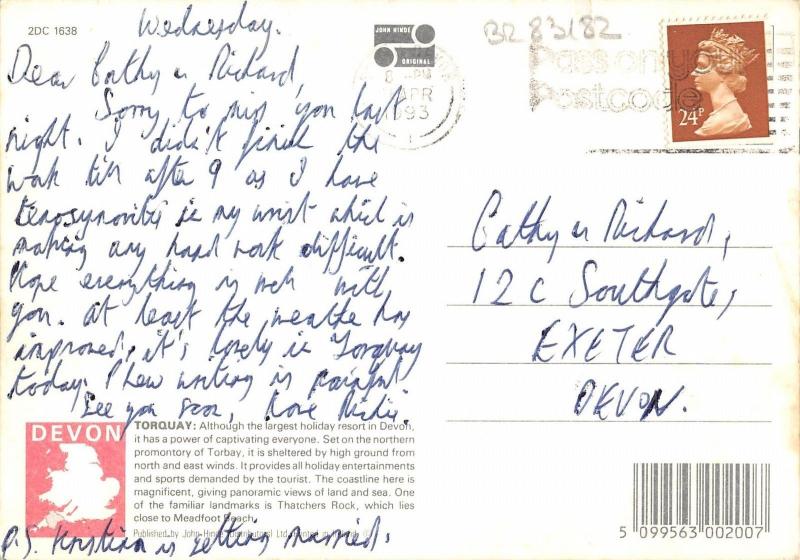 2DC 1638
Wednesday.
Dear Cathy & Richard,
Sorry to miss you last
night. I didn't finish the
work till after 9 as I have
tenosynovitis in my wrist which is
making any hard work difficult.
Hope everything is well with
you. At least the weather has
improved, it's lovely in Torquay
today. Phew writing is painful
See you soon, Love
P.S. Kristina is getting married.
JOHN HINDE
ORIGINAL
8 PM
APR
1993
BR 83/82
Pass on your
Postcode
24P
Cathy & Richard,
12 C Southgate,
EXETER
DEVON.
DEVON
TORQUAY: Although the largest holiday resort in Devon,
it has a power of captivating everyone. Set on the northern
promontory of Torbay, it is sheltered by high ground from
north and east winds. It provides all holiday entertainments
and sports demanded by the tourist. The coastline here is
magnificent, giving panoramic views of land and sea. One
of the familiar landmarks is Thatchers Rock, which lies
close to Meadfoot Beach.
Published by John Hinde (Distributors) Ltd.
5 099563 002007